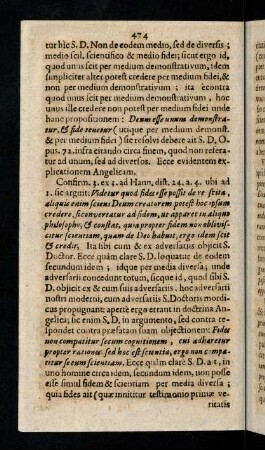 474
tur hîc S. D. Non de eodem medio, sed de diversis;
medio scil. scientifico & medio fidei; sicut ergo id,
quod unus scit per medium demonstrativum, idem
simpliciter alter potest credere per medium fidei, &
non per medium demonstrativum; ita è contra
quod unus scit per medium demonstrativum, hoc
unus ille credere non potest per medium fidei unde
hanc propositionem: Deum esse unum demonstra-
tur, & fide tenetur (utique per medium demonst.
& per medium fidei) sic resolvi debere ait S. D. O-
pus. 72. infra citando circa finem, quod non refera-
tur ad unum, sed ad diversos. Ecce evidentem ex-
plicationem Angelicam.
Confirm. 3. ex 1. ad Hann. dist. 24. a. 4. ubi ad
1. sic arguit. Videtur quod fides esse possit de re scita,
aliquis enim sciens Deum creatorem potest hoc ipsum
credere, si convertatur ad fidem, ut apparet in aliquo
philosopho, & constat, quia propter fidem non oblivis-
citur scientiam, quam de Deo habuit, ergo idem scit
& credit, Ita tibi cum & ex adversatiis objicit S.
Doctor. Ecce quàm clare S. D. loquatur de eodem
secundum idem; idque per media diversa; unde
adversarii concedunt totum, sicque id, quod sibi S.
D. objicit ex & cum suis adversariis. hoc adversarii
nostri moderni, cum adversariis S. Doctoris mordi-
cus propugnant: aperte ergo errant in doctrina An-
gelica; sic enim S. D. in argumento, sed contra re-
spondet contra præfatam suam objectionem: Fides
non compatitur secum cognitionem, cui adhæretur
propter rationes sed hoc est scientia, ergo non compa-
titur secum scientiam. Ecce quàm clarè S. D. ait, in
uno homine circa idem, secundum idem, non posse
esse simul fidem & scientiam per media diversa;
quia fides ait (quæ innititur testimonio primæ ve-
ritatis